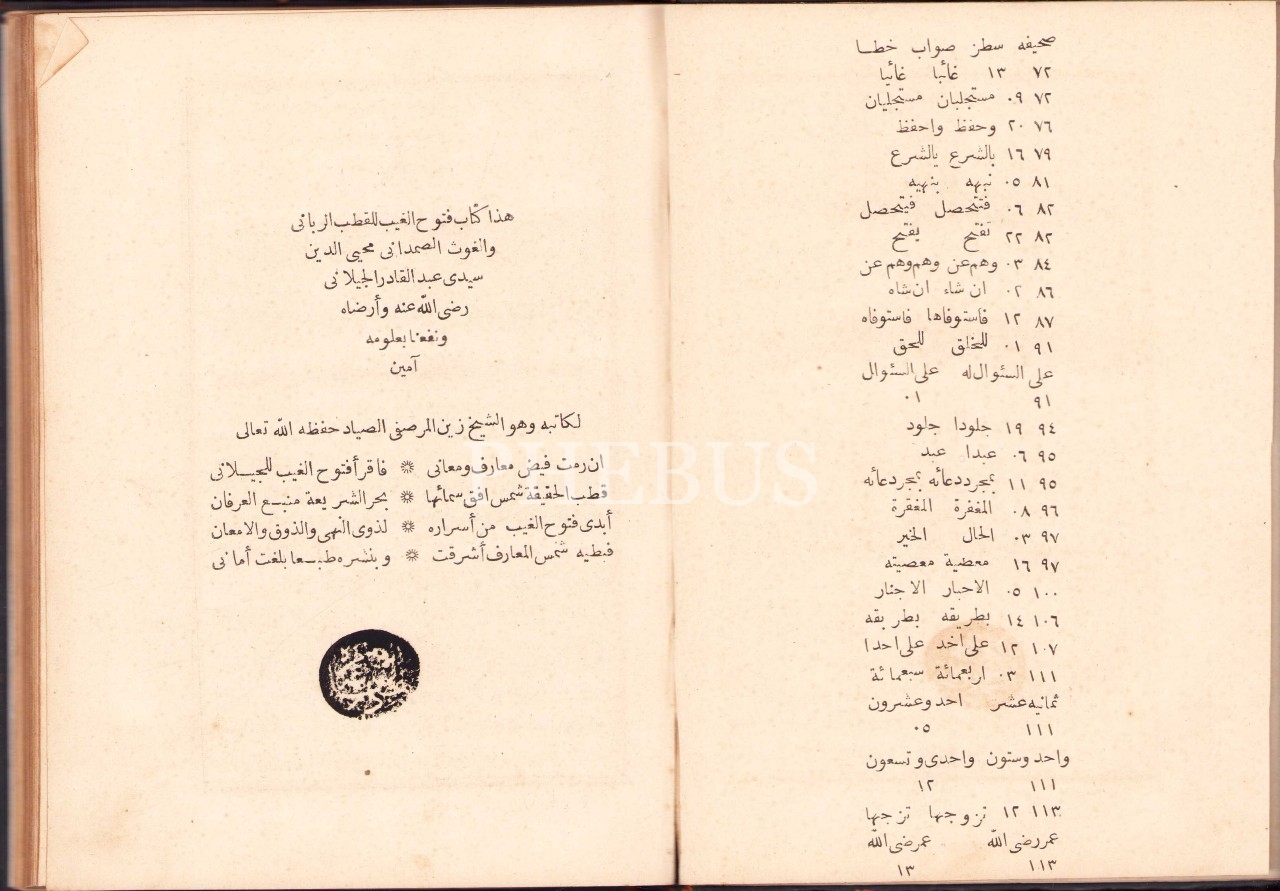 صحيفه سطر صواب خطا
٧٢ ١٣ غائبا غائيا
٧٢ ٠٩ مستجلبان مستجليان
٧٦ ٢٠ وحفظ واحفظ
٧٩ ١٦ بالشرع يالشرع
٨١ ٠٥ نبهه بنهيه
٨٢ ٠٦ فتتحصل فيتحصل
٨٢ ٢٢ تفتيح يفتيح
٨٤ ٠٣ وهم عن وهم وهم عن
٨٦ ٠٢ ان شاء ان شاه
٨٧ ١٢ فاستوفاها فاستوفاه
٩١ ٠١ للخلق للحق
على السئوال له على السئوال
٩١ ٠١
٩٤ ١٩ جلودا جلود
٩٥ ٠٦ عبدا عبد
٩٥ ١١ بمجرد دعائه بمجرد دعأنه
٩٦ ٠٨ المغفرة المغقرة
٩٧ ٠٣ الحال الخير
٩٧ ١٦ معضية معصيته
١٠٠ ٠٥ الاحبار الاجنار
١٠٦ ١٤ بطريقه بطريقه
١٠٧ ١٢ على اخد على احدا
١١١ ٠٣ اربعمائة سبعمائة
ثمانيه عشر احد وعشرون
١١١ ٠٥
واحد وستون واحدى وتسعون
١١١ ١٢
١١٣ ١٢ تزوجها تزجها
عمر رضى الله عمرضى الله
١١٣ ١٣
هذا كتاب فتوح الغيب للقطب الربانى
والغوث الصمدانى محيى الدين
سيدى عبد القادر الجيلانى
رضى الله عنه وأرضاه
ونفعنا بعلومه
آمين
لكاتبه وهو الشيخ زين المرصفى الصياد حفظه الله تعالى
ان رمت فيض معارف ومعانى ※ فاقرأ فتوح الغيب للجيلانى
قطب الحقيقة شمس افق سمائها ※ بحر الشريعة منبع العرفان
أبدى فتوح الغيب من أسراره ※ لذوى النهى والذوق والامعان
فبطيه شمس المعارف أشرقت ※ وبنشره طبعا بلغت أمانى
PHEBUS